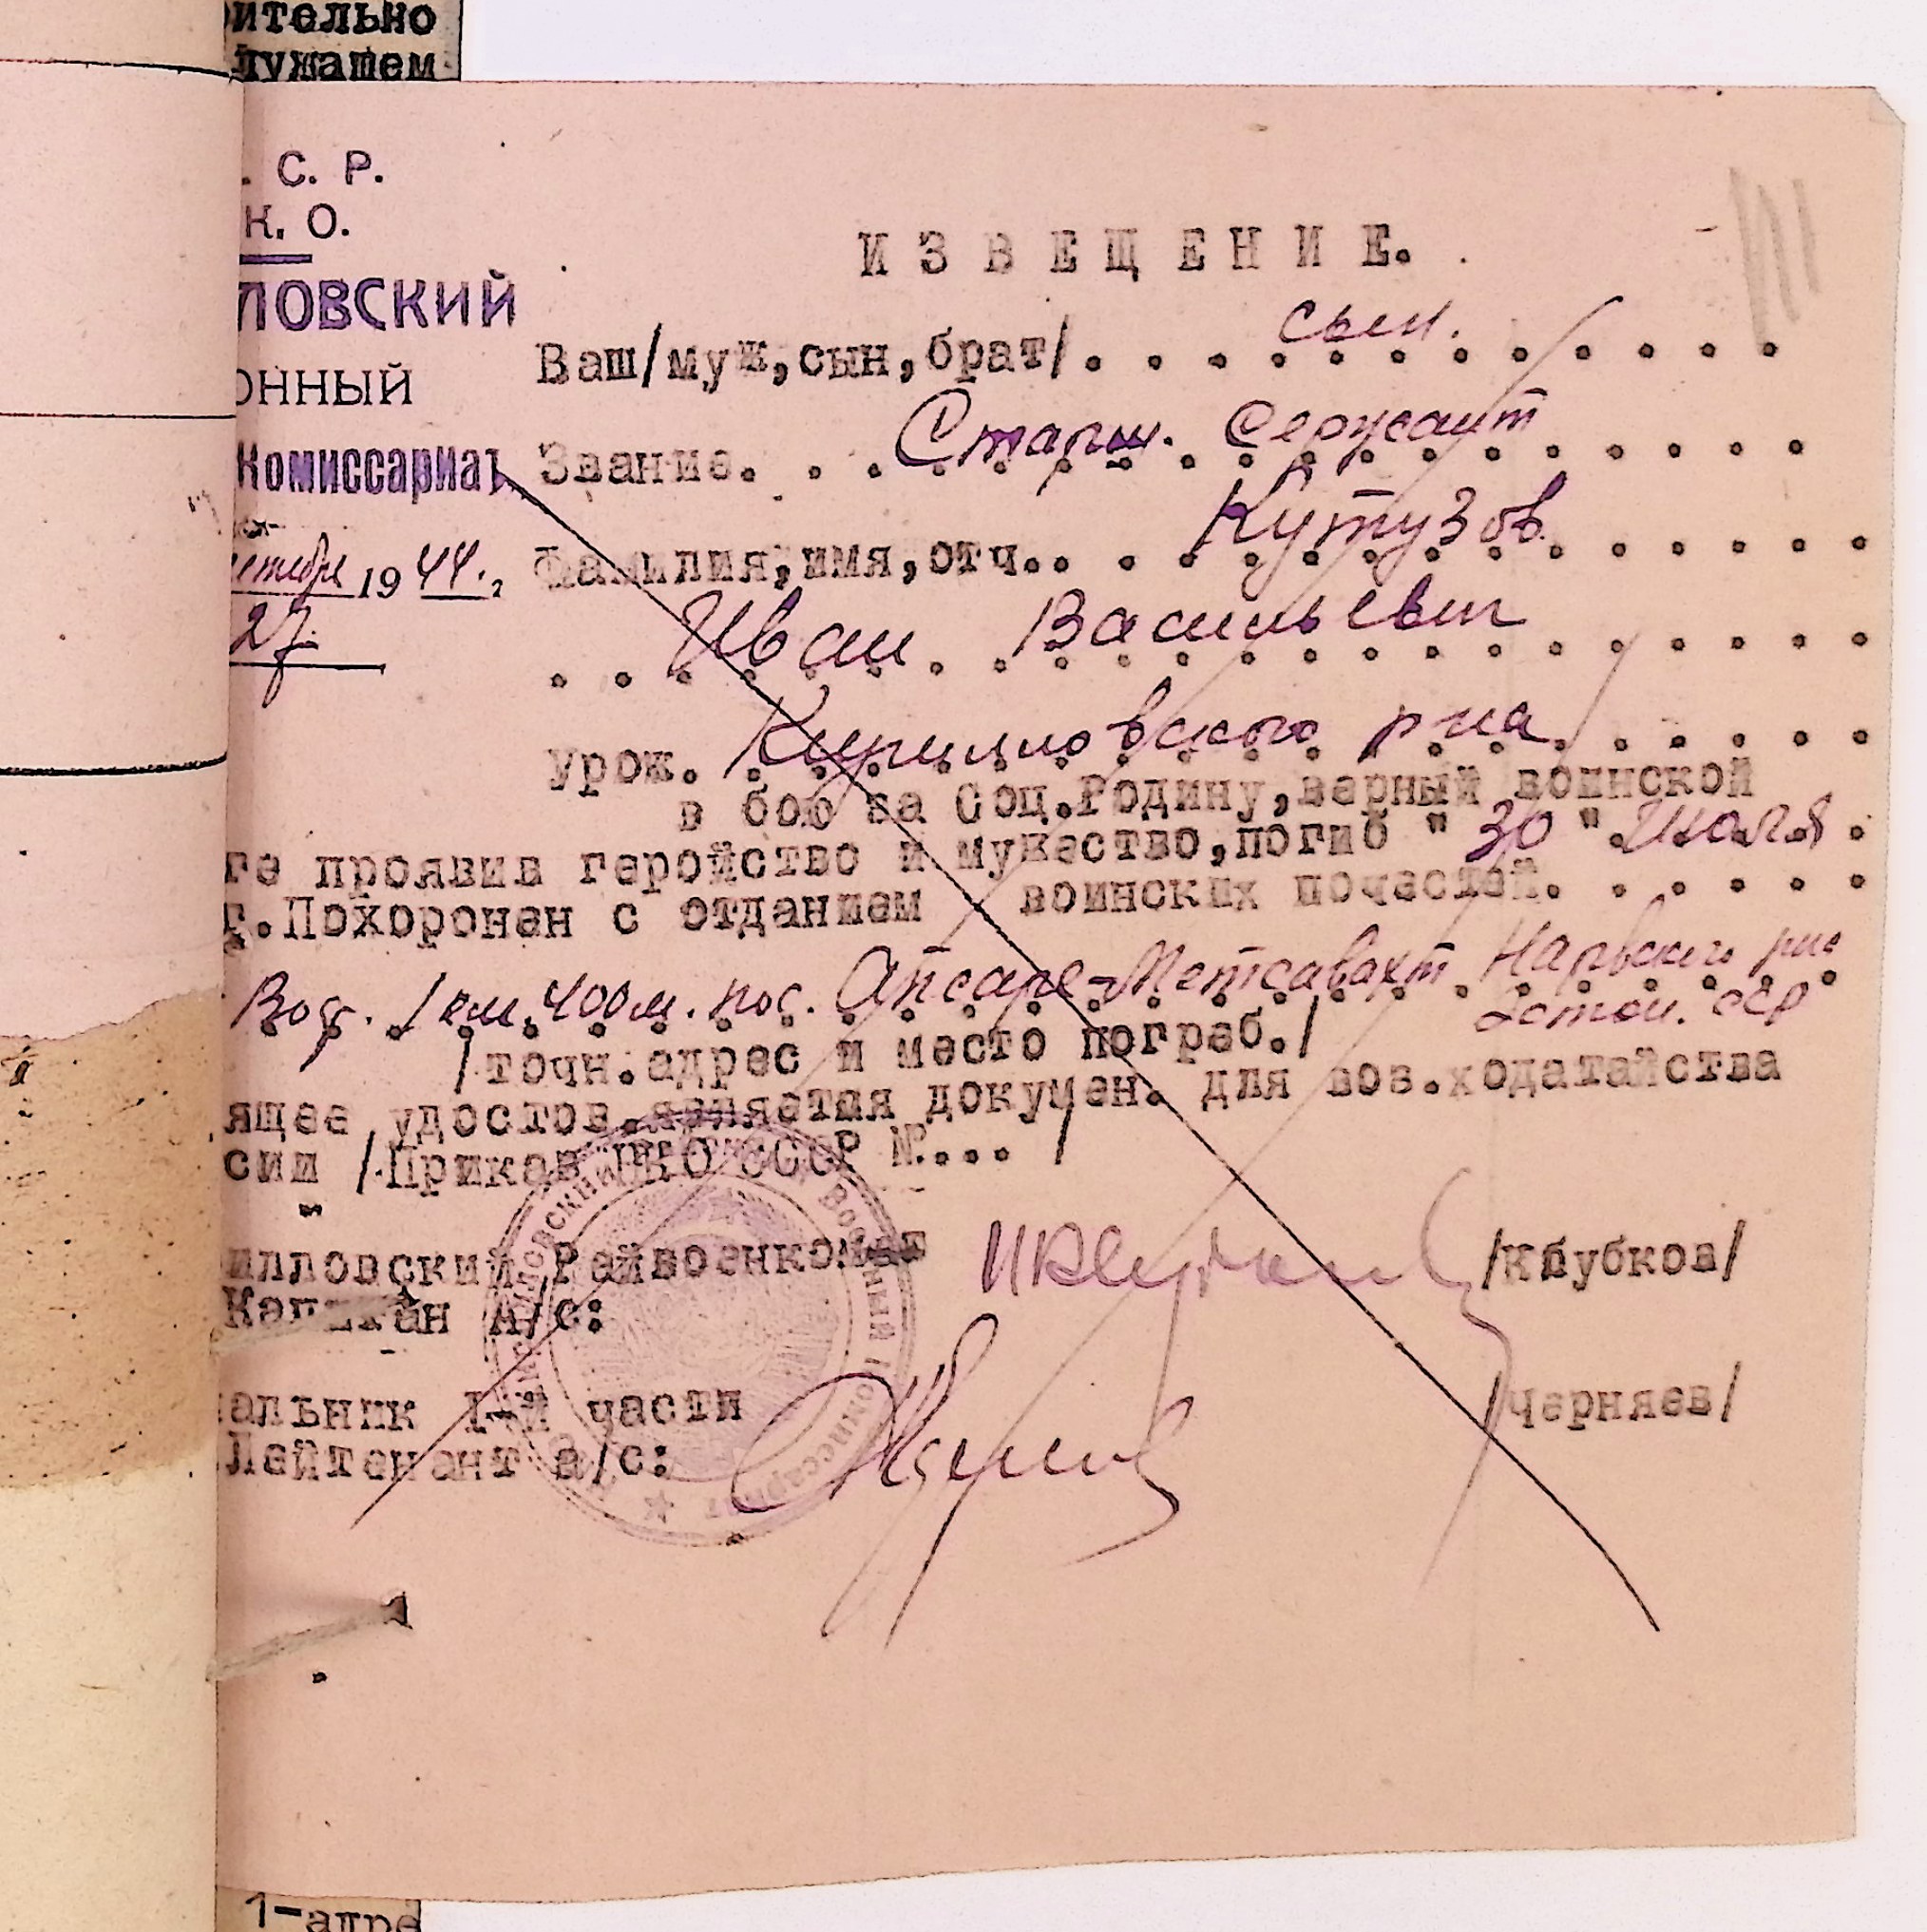 ительно
лужащем
. С. Р.
Н. О.
ЛОВСКИЙ
ОННЫЙ
Комиссариат
19 44.
27
ИЗВЕЩЕНИЕ.
Ваш/муж,сын,брат/. сын.
Звание. Старш. сержант
Фамилия,имя,отч.. Кутузов
Иван Васильевич
урож. Кирилловского р-на
в бою за Соц.Родину,верный воинской
ге проявив геройство и мужество,погиб "30" июля
г.Похоронен с отданием воинских почестей.
1 км. 400 м. Нарвского р-на
Эстон. ССР
/точн.адрес и место погреб./
ящее удостов.является докумен. для воз.ходатайства
сии /Приказ НКО СССР №... /
илловский Райвоенкомат
Капитан А/с: /Клубков/
альник 1-й части
Лейтенант а/с: /Черняев/
Военный Комиссариат
1-адре